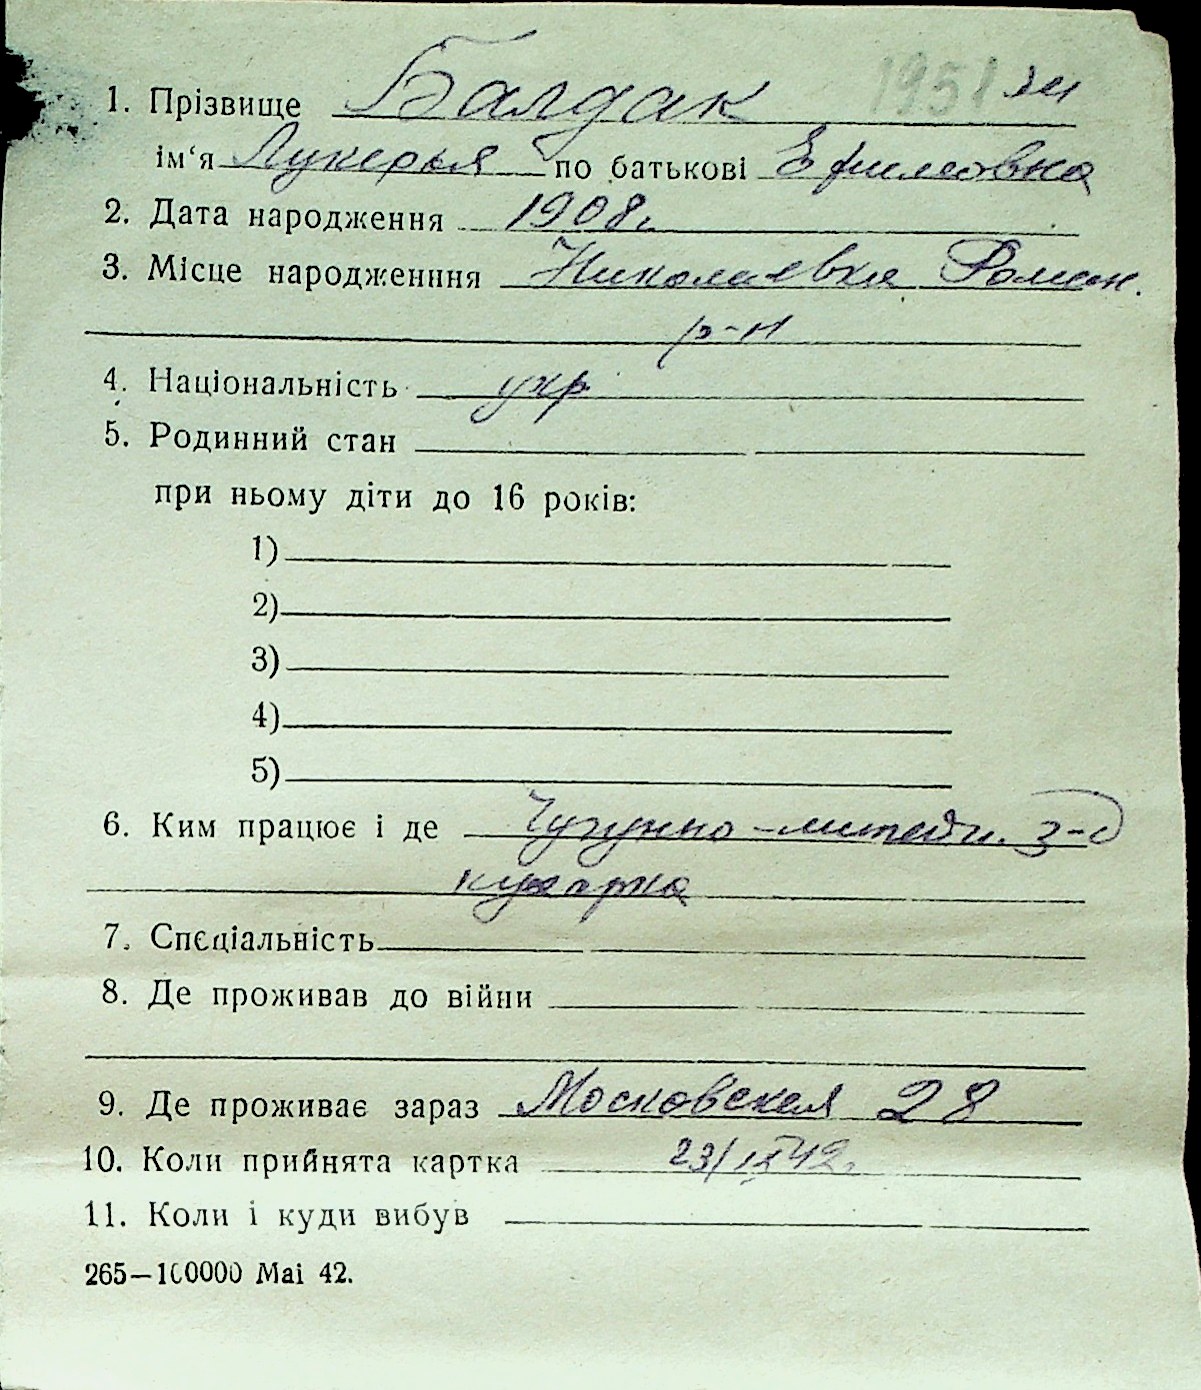 1951
1. Прізвище Балдак
ім‘я Лукерья по батькові Ефимовна
2. Дата народження 1908г.
3. Місце народженння Николаевка Ромен.
р-н
4. Національність укр
5. Родинний стан
при ньому діти до 16 років:
1)
2)
3)
4)
5)
6. Ким працює і де Чугунно-литейн. з-д
кухарка
7. Спеціальність
8. Де проживав до війни
9. Де проживає зараз Московская 28
10. Коли прийнята картка 23/IX 42г.
11. Коли і куди вибув
265—100000 Mai 42.